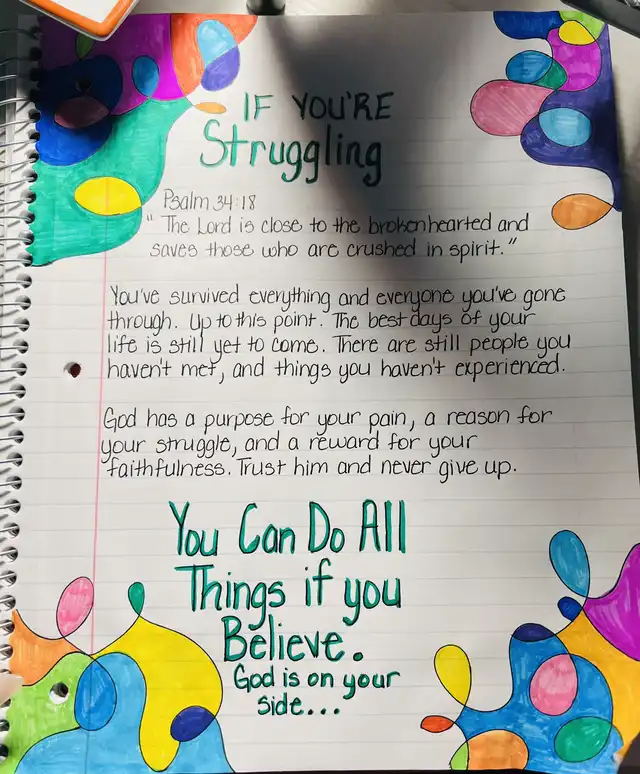 IF YOU'RE
Struggling
Psalm 34:18
"The Lord is close to the brokenhearted and
saves those who are crushed in spirit."
You've survived everything and everyone you've gone
through. Up to this point. The best days of your
life is still yet to come. There are still people you
haven't met, and things you haven't experienced.
God has a purpose for your pain, a reason for
your struggle, and a reward for your
faithfulness. Trust him and never give up.
You Can Do All
Things if you
Believe.
God is on your
side...